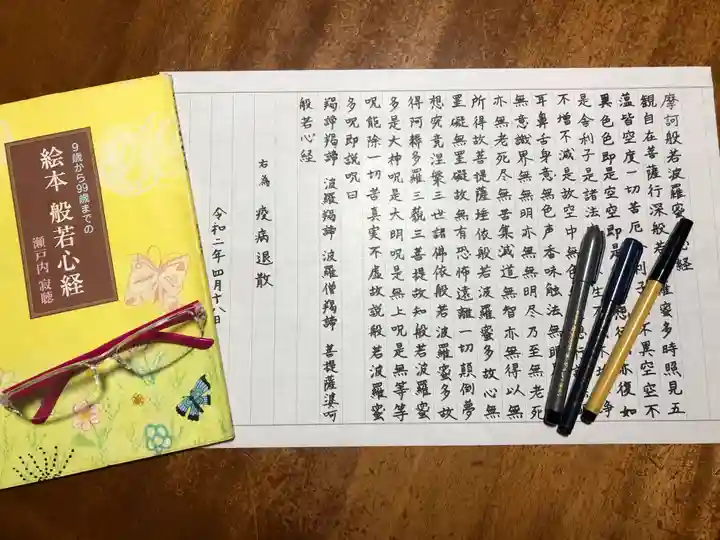 9歳から99歳までの
絵本 般若心経
瀬戸内 寂聴
摩訶般若波羅蜜心経
観自在菩薩行深般若羅蜜多時照見五
蘊皆空度一切苦厄利子不異空空不
異色色即是空空即是想行亦復如
是舎利子是諸法生不不浄
不増不減是故空中無色
耳鼻舌身意無色声香味触法無眼
無意識界亦無無明亦無無明尽乃至無老死
亦無老死尽無苦集滅道無智亦無得以無
所得故菩提薩埵依般若波羅蜜多故心無
罣礙無罣礙故無有恐怖遠離一切顛倒夢
想究竟涅槃三世諸佛依般若波羅蜜多故
得阿耨多羅三藐三菩提故知般若波羅蜜
多是大神呪是大明呪是無上呪是無等等
呪能除一切苦真実不虚故説般若波羅蜜
多呪即説呪曰
羯諦羯諦 波羅羯諦 波羅僧羯諦 菩提薩婆呵
般若心経
右為 疫病退散
令和二年 四月十八日